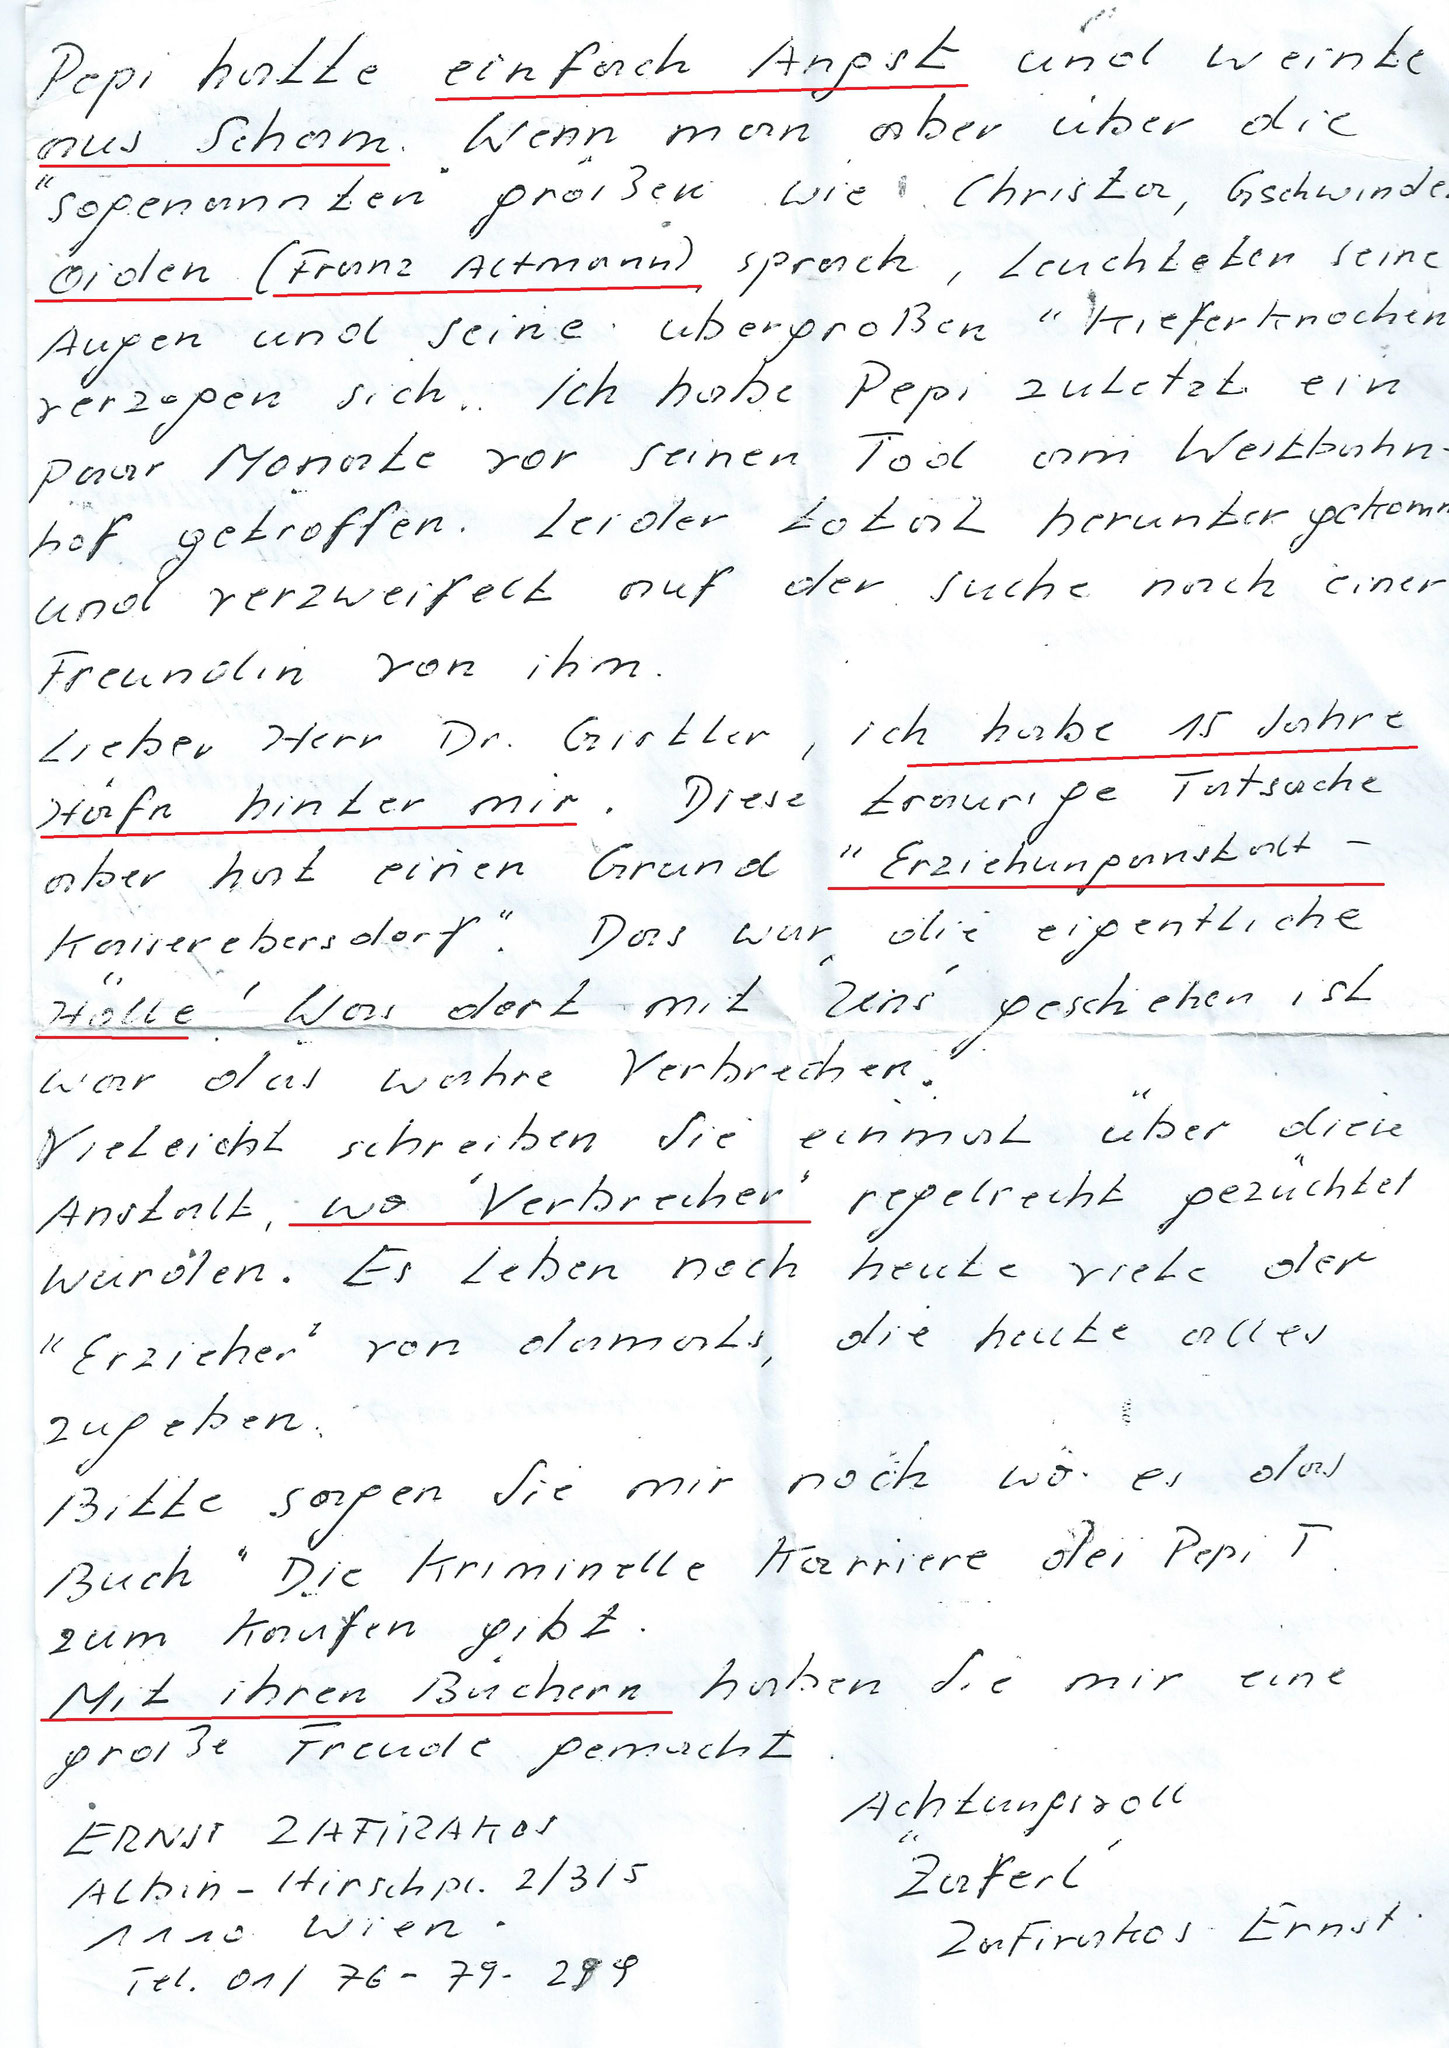 Pepi hatte einfach Angst und weinte
aus Scham. Wenn man aber über die
"sogenannten" größen wie Christa, Gschwinde
oiden (Franz Altmann) sprach, leuchteten seine
Augen und seine übergroßen "Kieferknochen
verzogen sich.. Ich habe Pepi zuletzt ein
paar Monate vor seinen Tod am Westbahn-
hof getroffen. Leider total heruntergekomm
und verzweifelt auf der suche nach einer
Freundin von ihm.
Lieber Herr Dr. Girtler, ich habe 15 Jahre
Häfn hinter mir. Diese traurige Tatsache
aber hat einen Grund "Erziehunganstalt-
Kaiserebersdorf". Das war die eigentliche
Hölle! Was dort mit 'Uns' geschehen ist
war das wahre Verbrechen!
Vieleicht schreiben Sie einmal über diese
Anstalt, wo 'Verbrecher' regelrecht gezüchtet
wurden. Es leben noch heute viele der
"Erzieher" von damals, die heute alles
zugeben.
Bitte sagen Sie mir noch wo es das
Buch "Die Kriminelle Karriere des Pepi T.
zum Kaufen gibt.
Mit ihren Büchern haben Sie mir eine
große Freude gemacht.
Achtungsvoll
ERNST ZAFIRAKOS
"Zaferl"
Albin-Hirschpl. 2/3/5
Zafirakos Ernst.
1110 Wien.
Tel. 01/ 76-79-